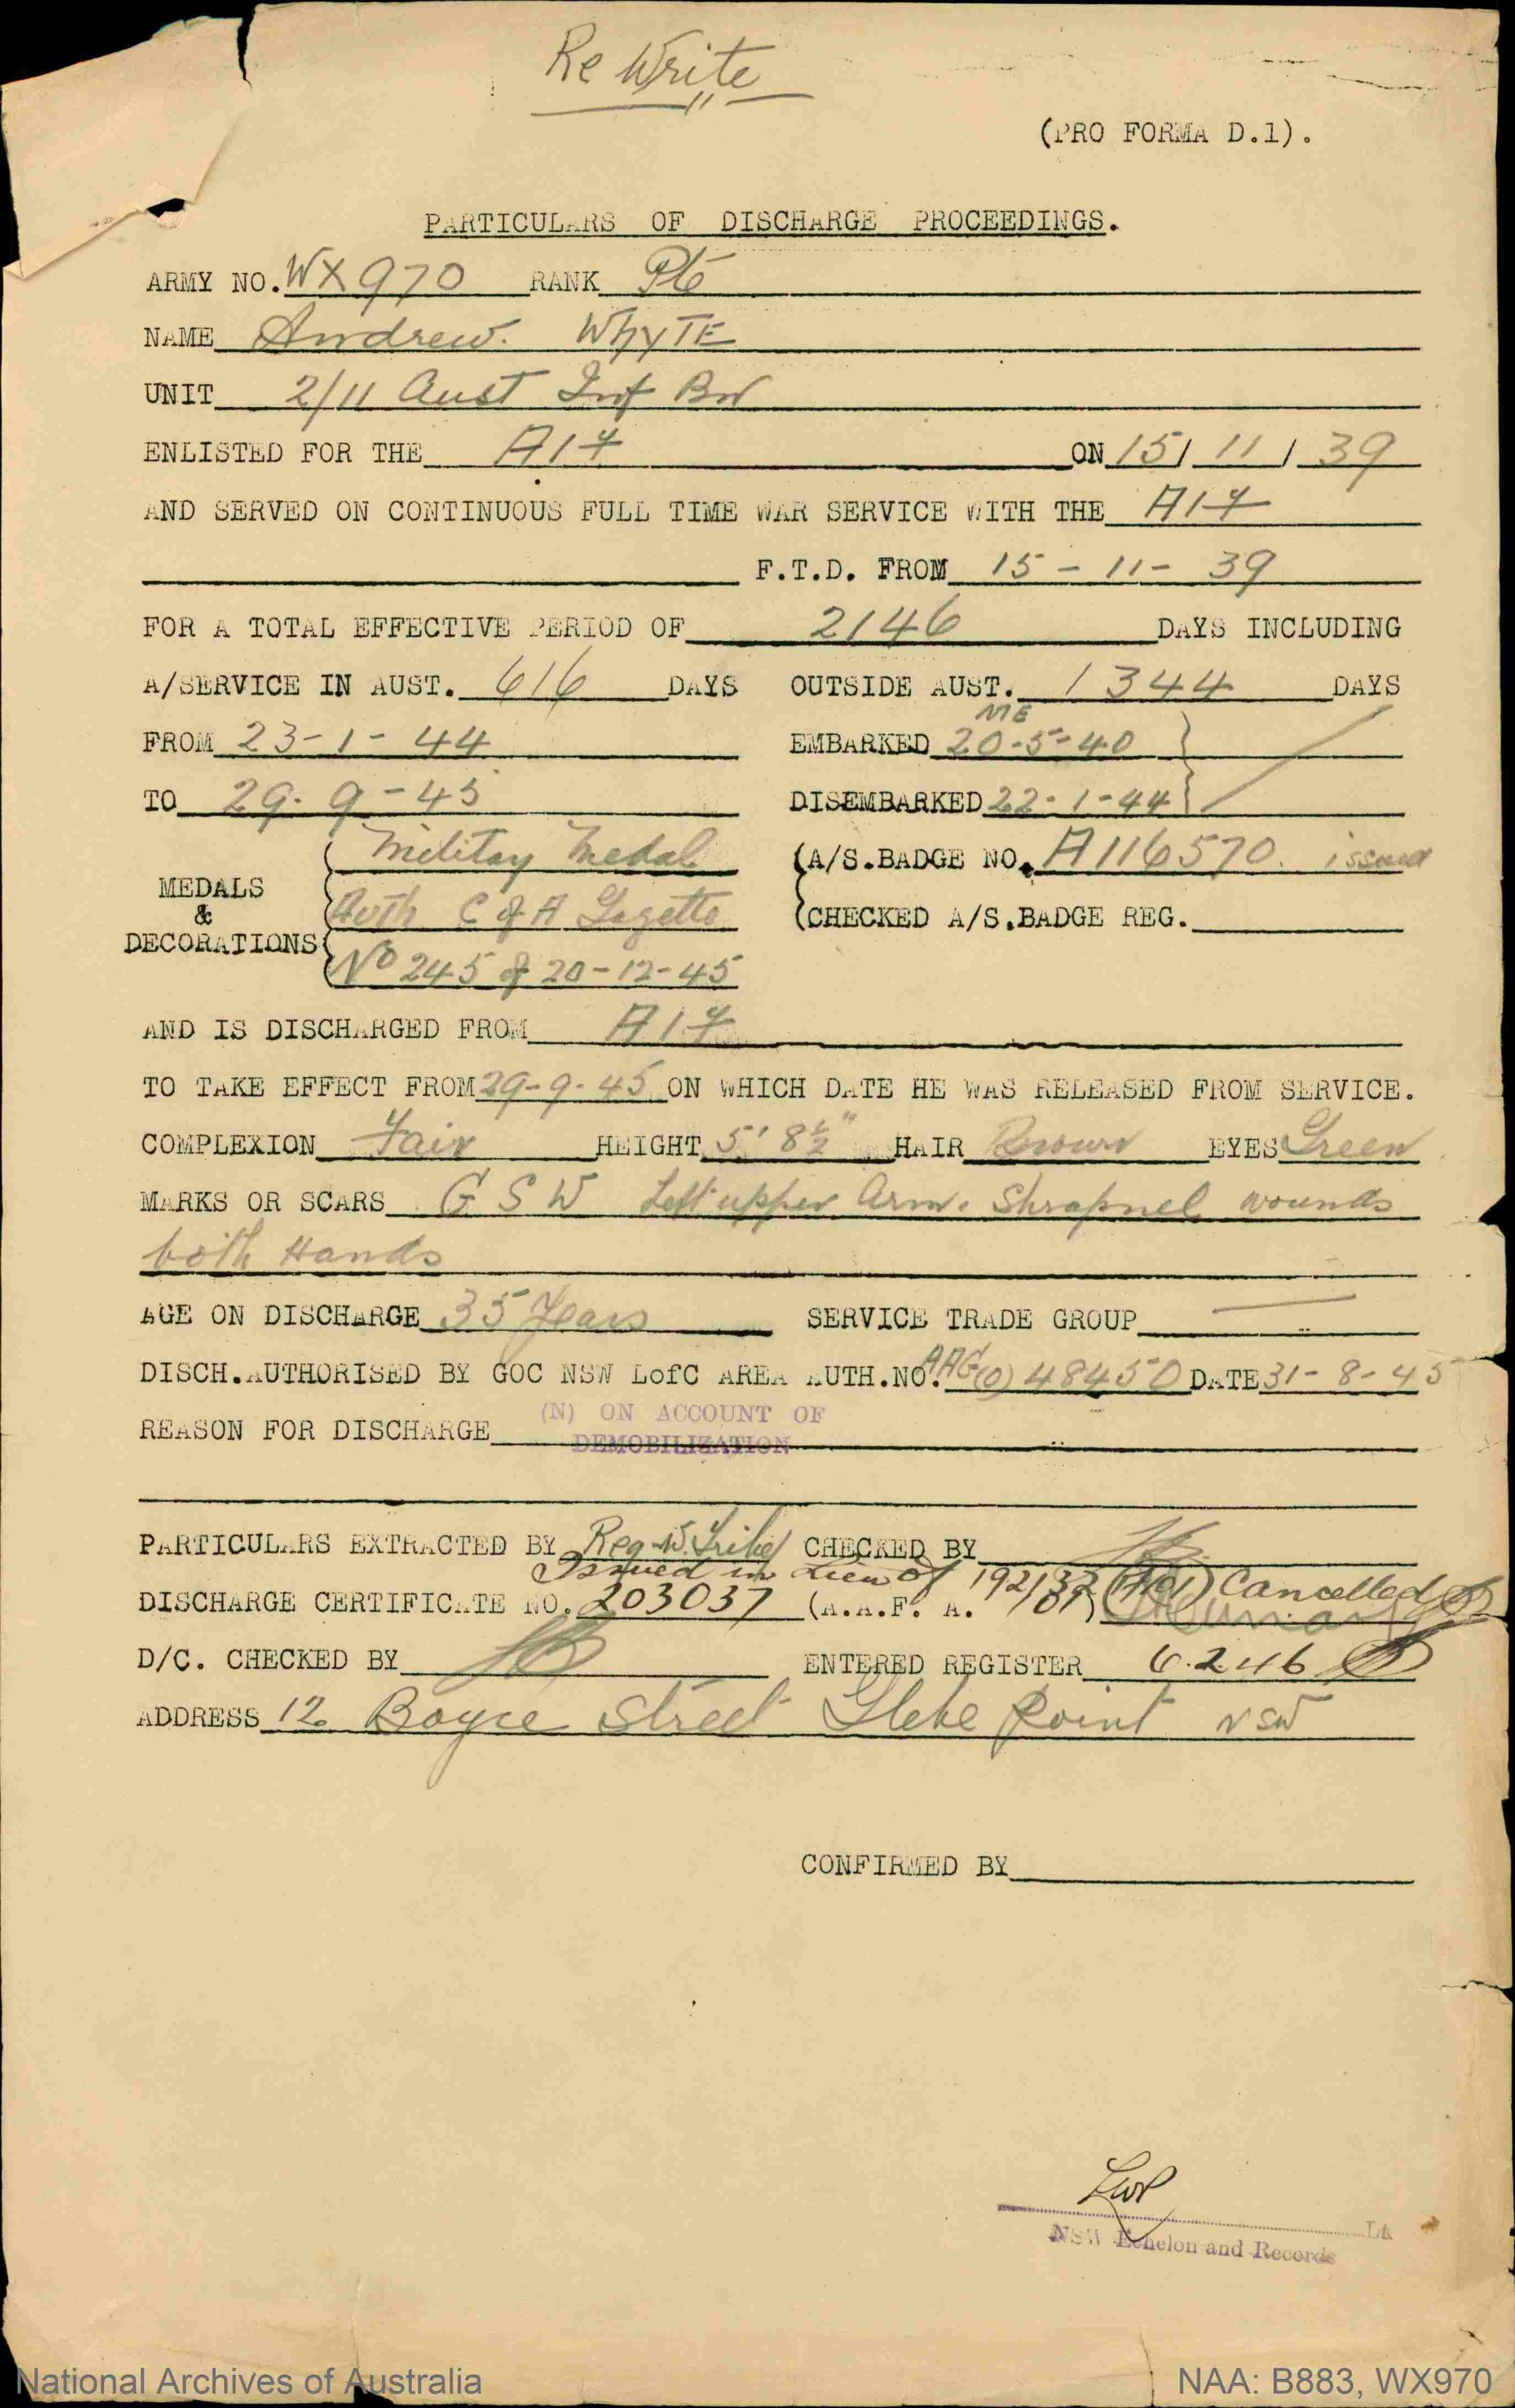 Re Write
(PRO FORMA D.1).
PARTICULARS OF DISCHARGE PROCEEDINGS.
ARMY NO. WX970 RANK Pte
NAME Andrew. WhyTE
UNIT 2/11 Aust Inf Bn
ENLISTED FOR THE AIF ON 15/ 11 / 39
AND SERVED ON CONTINUOUS FULL TIME WAR SERVICE WITH THE AIF
F.T.D. FROM 15 - 11 - 39
FOR A TOTAL EFFECTIVE PERIOD OF 2146 DAYS INCLUDING
A/SERVICE IN AUST. 616 DAYS OUTSIDE AUST. 1344 DAYS
ME
FROM 23-1-44 EMBARKED 20-5-40
TO 29-9-45 DISEMBARKED 22-1-44
MEDALS & DECORATIONS
Military Medal
Auth C of A Gazette
No 245 of 20-12-45
(A/S.BADGE NO. A116570. issued
(CHECKED A/S.BADGE REG.
AND IS DISCHARGED FROM AIF
TO TAKE EFFECT FROM 29-9-45 ON WHICH DATE HE WAS RELEASED FROM SERVICE.
COMPLEXION Fair HEIGHT 5' 8½" HAIR Brown EYES Green
MARKS OR SCARS G S W Left upper Arm. Shrapnel wounds
both Hands
AGE ON DISCHARGE 35 Years SERVICE TRADE GROUP —
DISCH.AUTHORISED BY GOC NSW LofC AREA AUTH.NO. AAG(O) 48450 DATE 31-8-45
(N) ON ACCOUNT OF
REASON FOR DISCHARGE DEMOBILIZATION
PARTICULARS EXTRACTED BY CHECKED BY
Issued in Lieu of 192132 Cancelled
DISCHARGE CERTIFICATE NO. 203037 (A.A.F. A.
D/C. CHECKED BY ENTERED REGISTER 6.2.46
ADDRESS 12 Boyce Street Glebe Point NSW
CONFIRMED BY
Lt
NSW Echelon and Records
National Archives of Australia NAA: B883, WX970